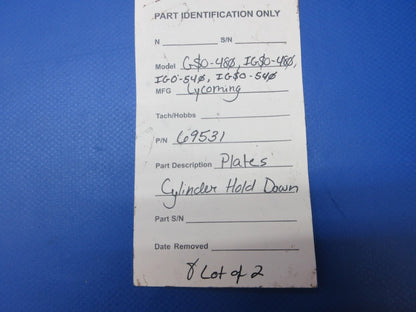 PART IDENTIFICATION ONLY
N S/N
Model GSO-480, IGSO-480,
IGO-540, IGSO-540
MFG Lycoming
Tach/Hobbs
P/N 69531
Part Description Plates
Cylinder Hold Down
Part S/N
Date Removed
Lot of 2